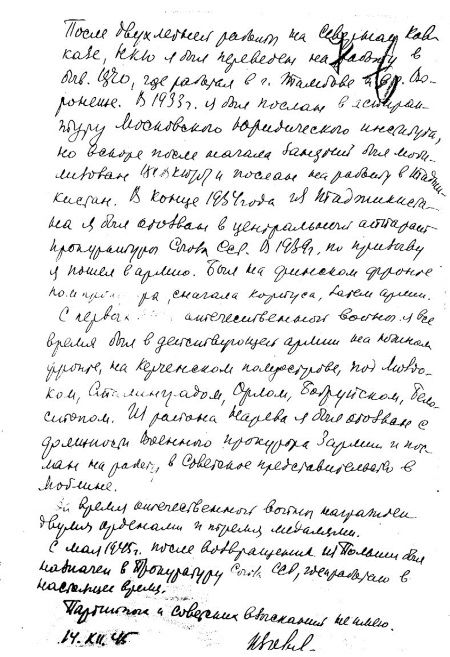 После двухлетней работы на Северном Кав-
казе, НКЮ я был переведен на работу в
быв. ЦЧО, где работал в г. Тамбове и в Во-
ронеже. В 1933 г. я был послан в аспиран-
туру Московского юридического института,
но вскоре после начала занятий был моби-
лизован ЦК ВКП(б) и послан на работу в Таджи-
кистан. В конце 1934 года из Таджикиста-
на я был отозван в центральный аппарат
прокуратуры Союза ССР. В 1939 г. по призыву
я пошел в армию. Был на финском фронте
ра сначала корпуса, затем армии.
С первых отечественной войны я все
время был в действующей армии на южном
фронте, на Керченском полуострове, под
Сталинградом, Орлом, Бобруйском, Бело-
стоком. Из района Нарева я был отозван с
должности военного прокурора 3 армии и пос-
лан на работу в Советское представительство в
Люблине.
время отечественной войны награжден
двумя орденами и тремя медалями.
С мая 1945 г. после возвращения из Польши был
назначен в Прокуратуру Союза ССР, где работаю в
настоящее время.
Партийных и советских взысканий не имею.
14. XII. 45